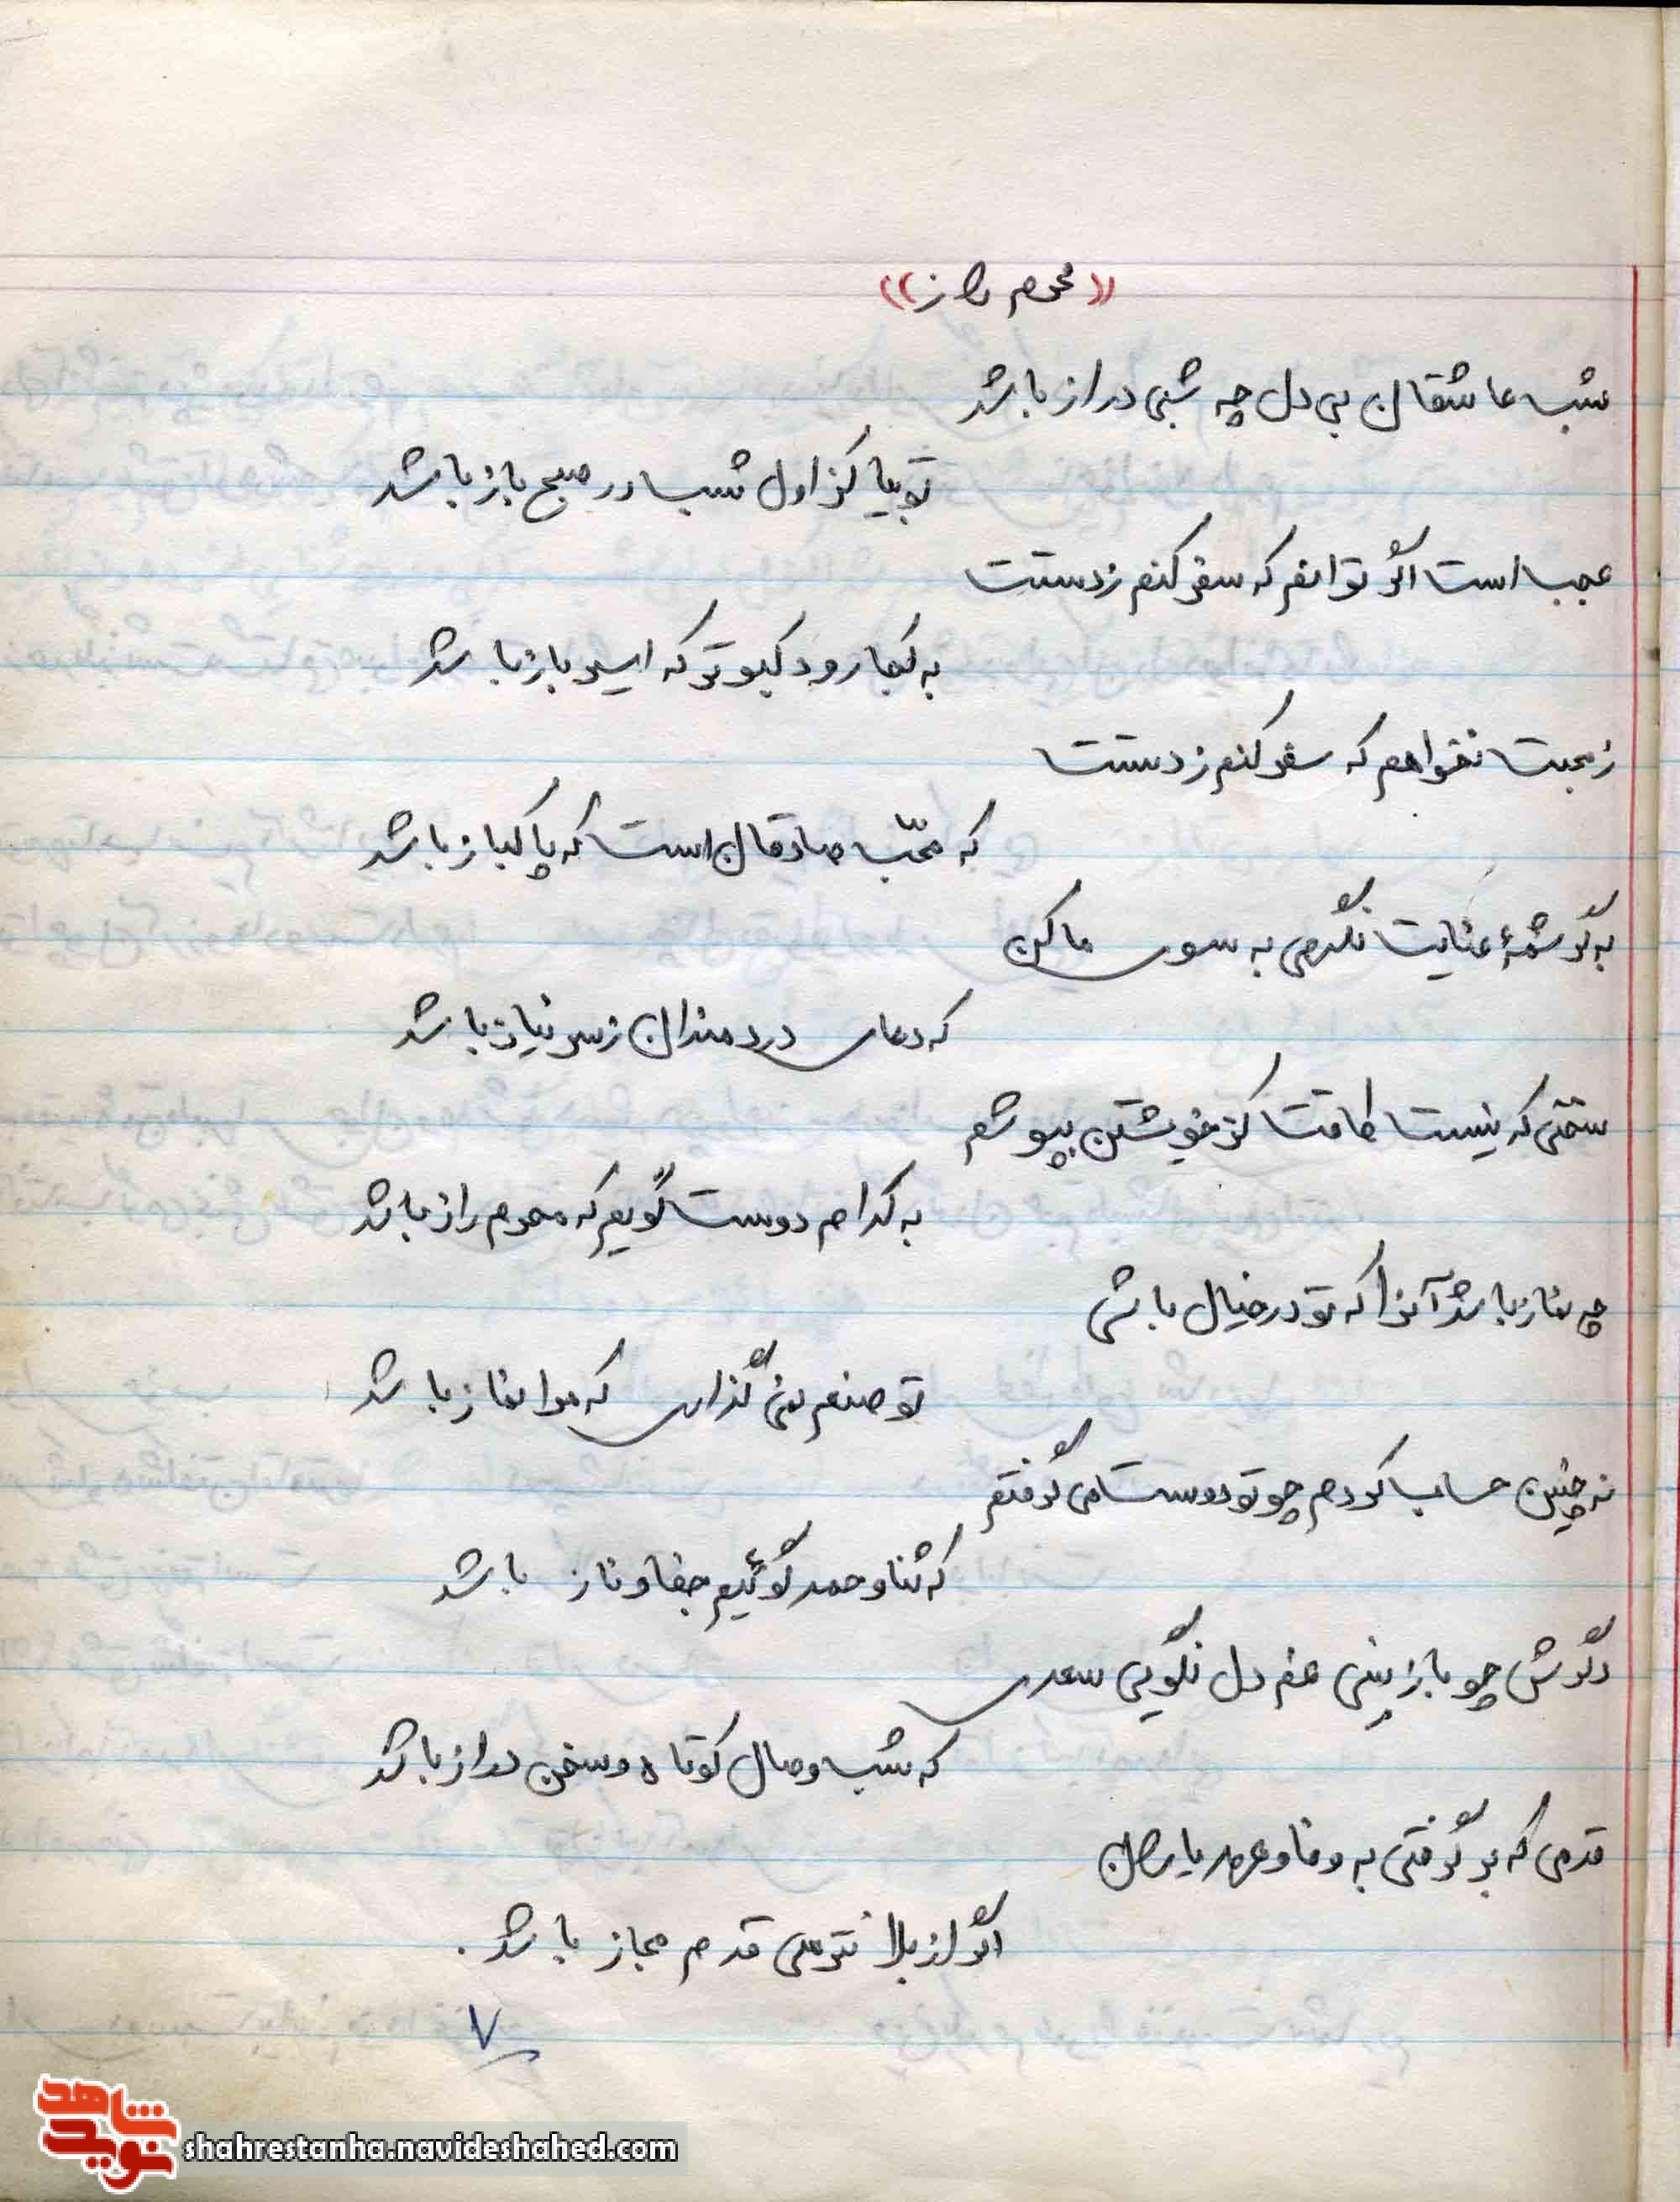 ((محرم راز))
شب عاشقان بی دل چه شبی دراز باشد
تو بیا کز اول شب در صبح باز باشد
عجب است اگر توانم که سفر کنم زدستت
به کجا رود کبوتر که اسیر باز باشد
زمحبت نخواهم که سفر کنم زدستت
که محبّ صادقان است که پاکباز باشد
به کرشمهٔ عنایت نگرمی به سوی ما کن
که دعای دردمندان زسر نیاز باشد
سخنی که نیست طاقت کز خویشتن بپوشم
به کدام دوست گویم که محرم راز باشد
چه نماز باشد آنرا که تو در خیال باشی
تو صنم نمی گذاری که مرا نماز باشد
نه چنین حساب کردم چو تو دوست می گرفتم
که ثنا و حمد گوئیم جفا و ناز باشد
دگرش چو باز بینی غم دل نگویی سعدی
که شب وصال کوتاه و سخن دراز باشد
قدمی که بر گرفتی به وفا و عهد یاران
اگر از بلا نترسی قدم مجاز باشد.
۷
شاهد
نوید
shahrestanha.navideshahed.com